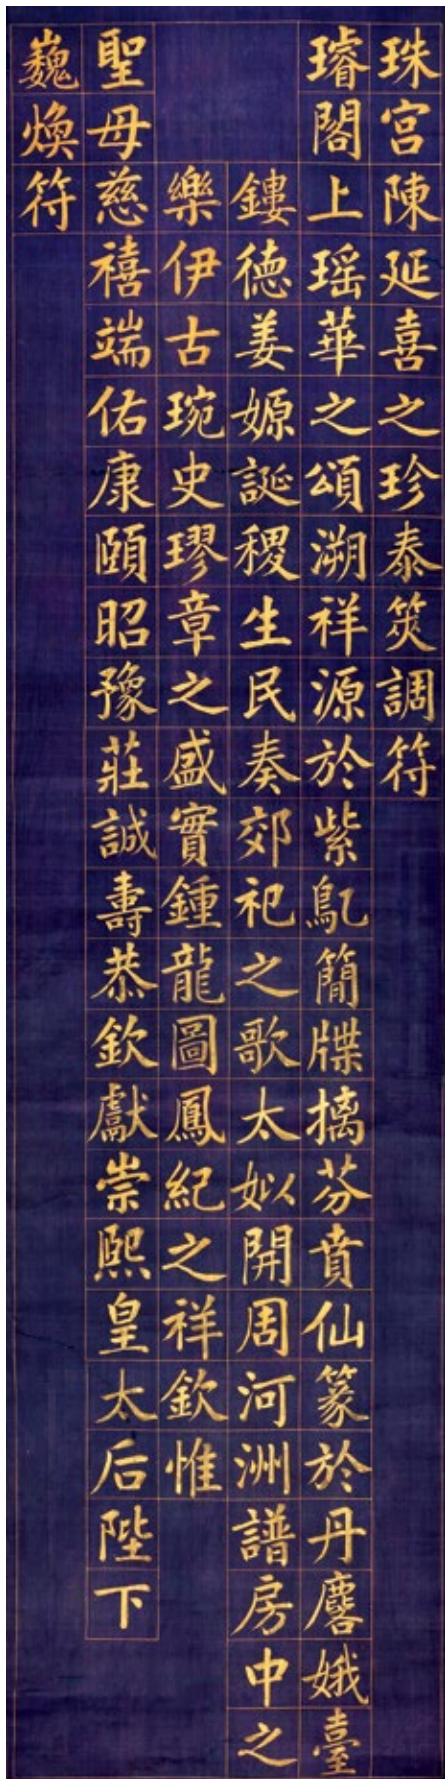 珠宮陳延喜之珍泰筴調符
璿閣上瑶華之頌溯祥源於紫鳦簡牒摛芬賁仙篆於丹麐娥臺
鏤德姜嫄誕稷生民奏郊祀之歌太姒開周河洲譜房中之
樂伊古琬史璆章之盛實鍾龍圖鳳紀之祥欽惟
聖母慈禧端佑康頤昭豫莊誠壽恭欽獻崇熙皇太后陛下
巍煥符